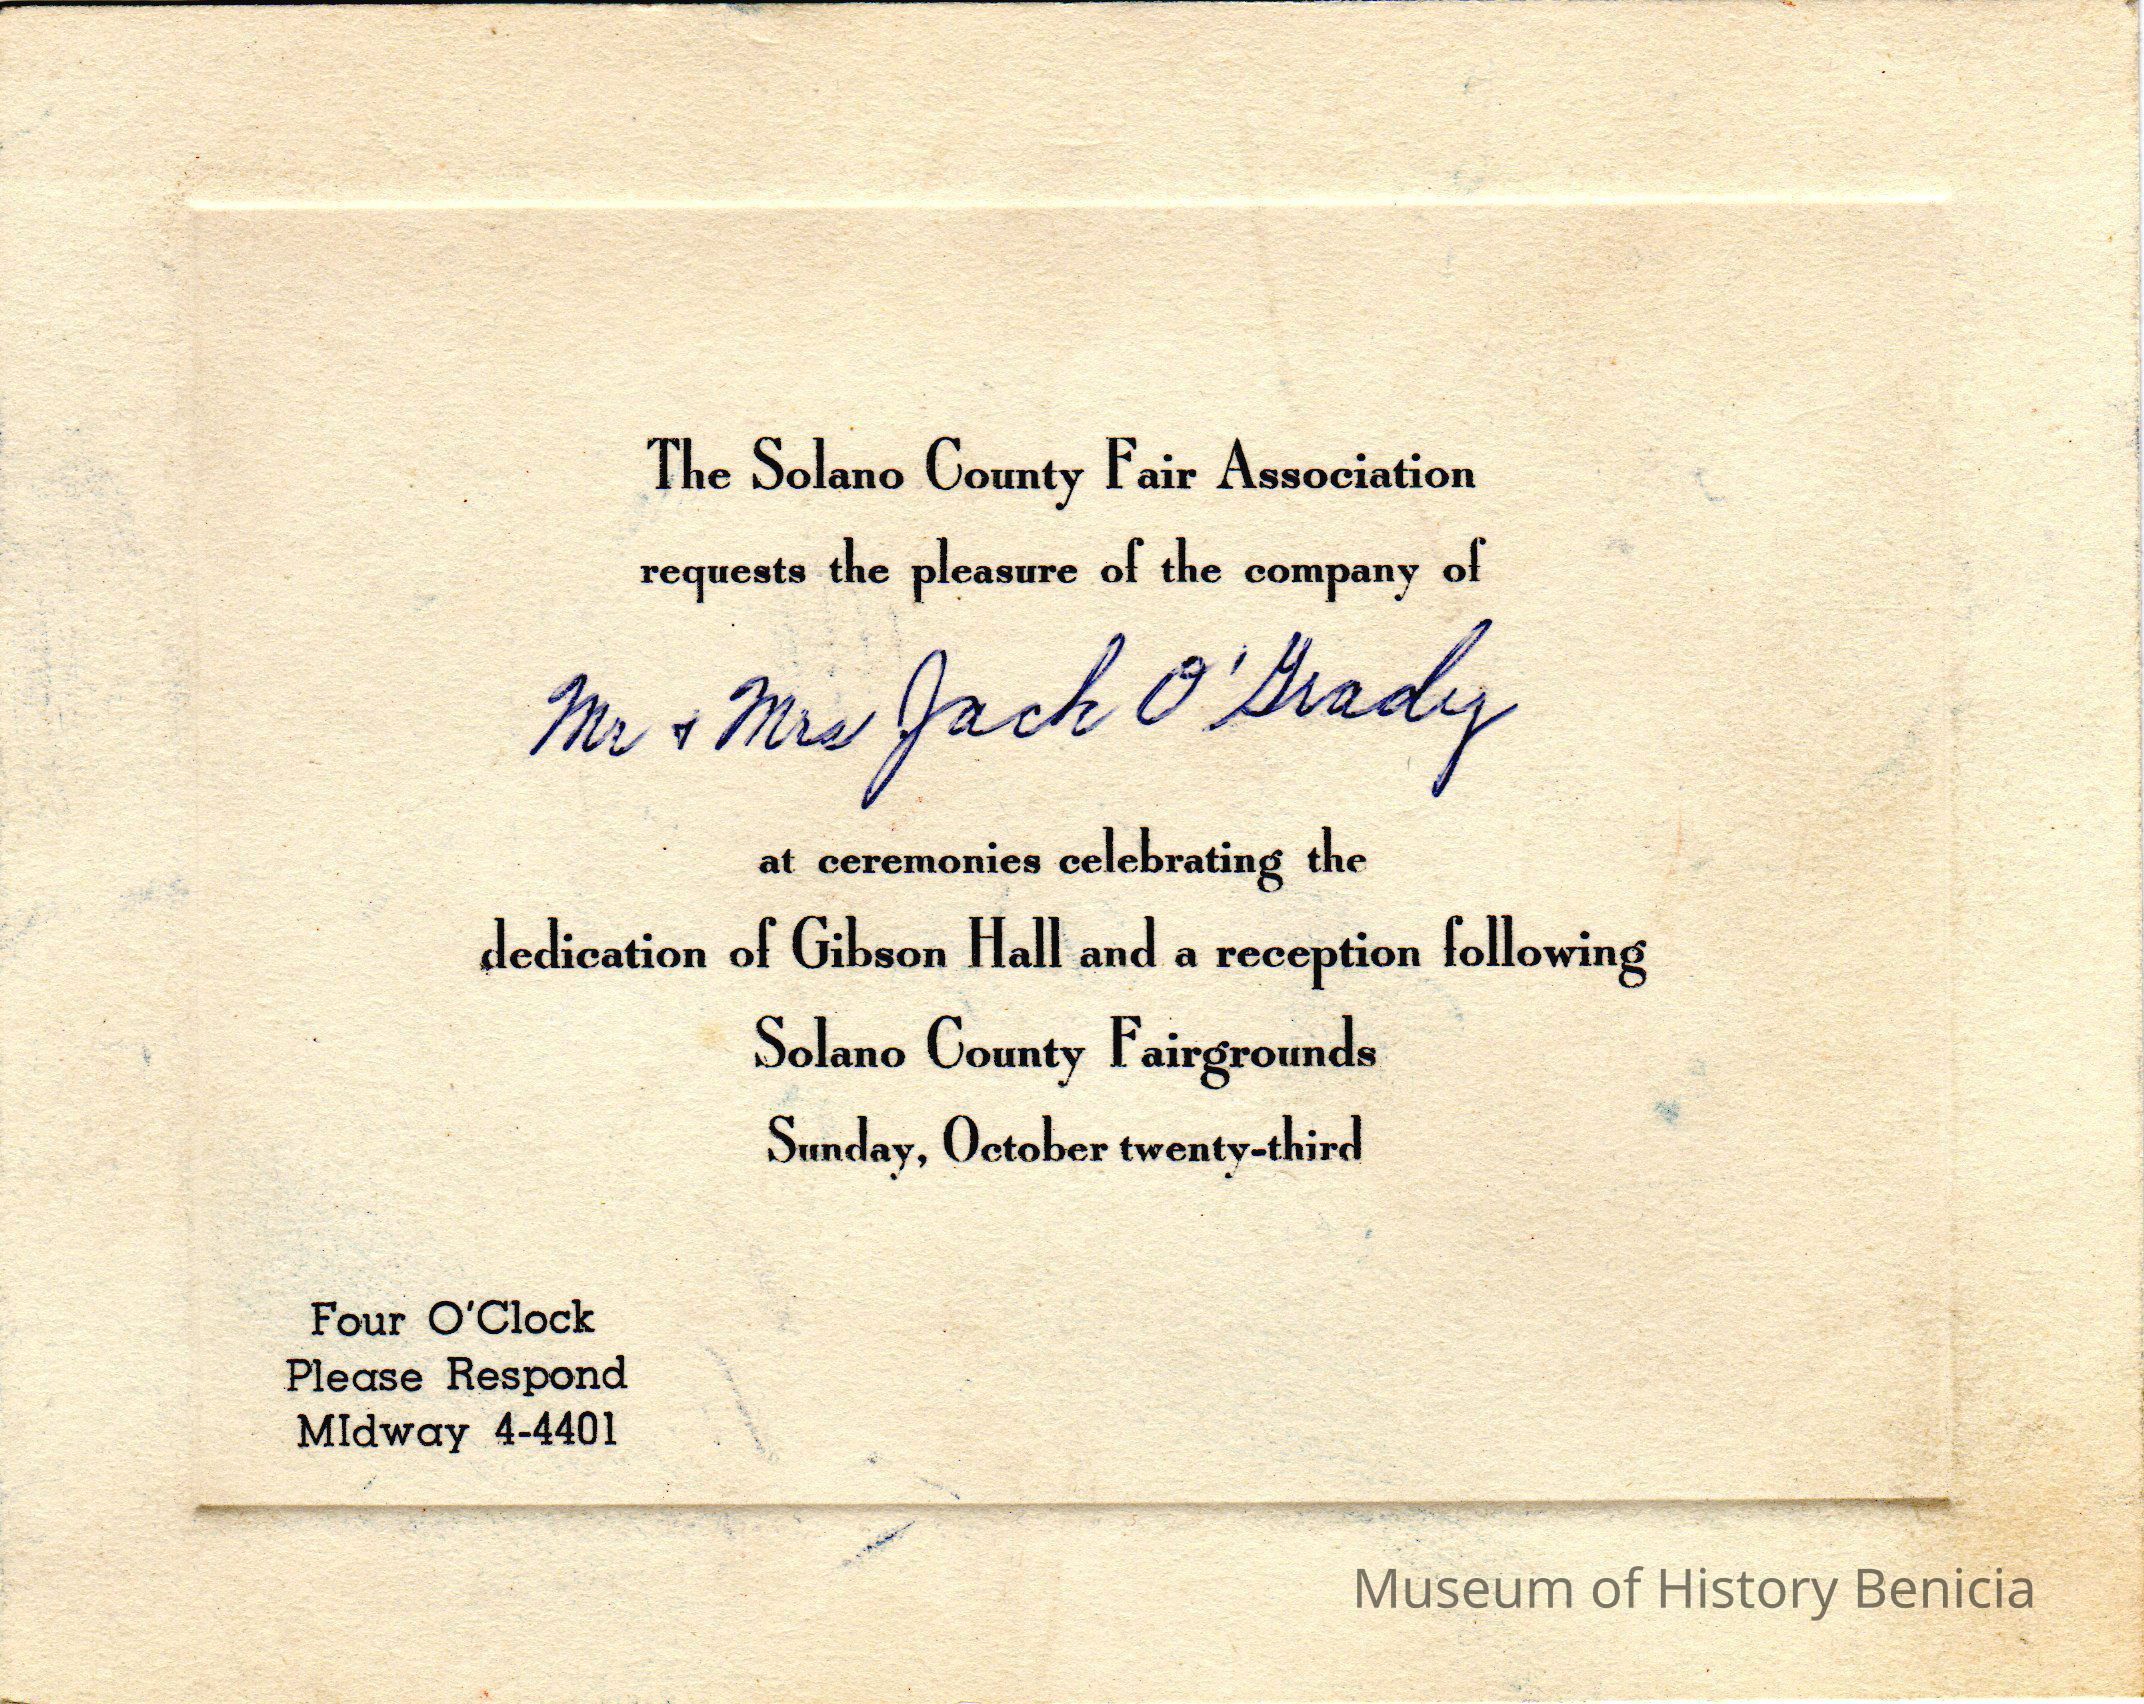 The Solano County Fair Association
requests the pleasure of the company of
Mr & Mrs Jack O'Grady
at ceremonies celebrating the
dedication of Gibson Hall and a reception following
Solano County Fairgrounds
Sunday, October twenty-third
Four O'Clock
Please Respond
MIdway 4-4401
Museum of History Benicia